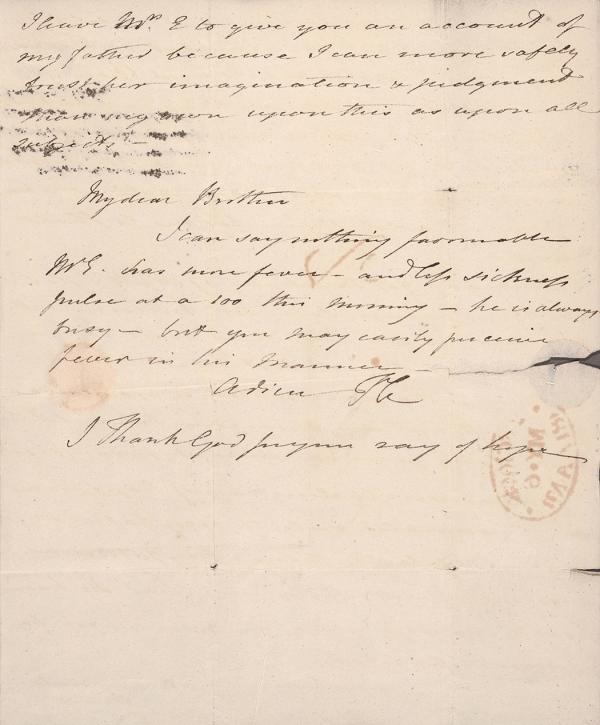 I leave Mrs. E to give you an account of
my father because I can more safely
trust her imagination & judgment
than my own upon this as upon all
subjects –
My dear Brother
I can say nothing favourable
Mr E. has more fever – and less sickness
pulse at a 100 this morning – he is always
busy – but you may easily perceive
fever in his manner –
Adieu
I Thank God for your ray of hope